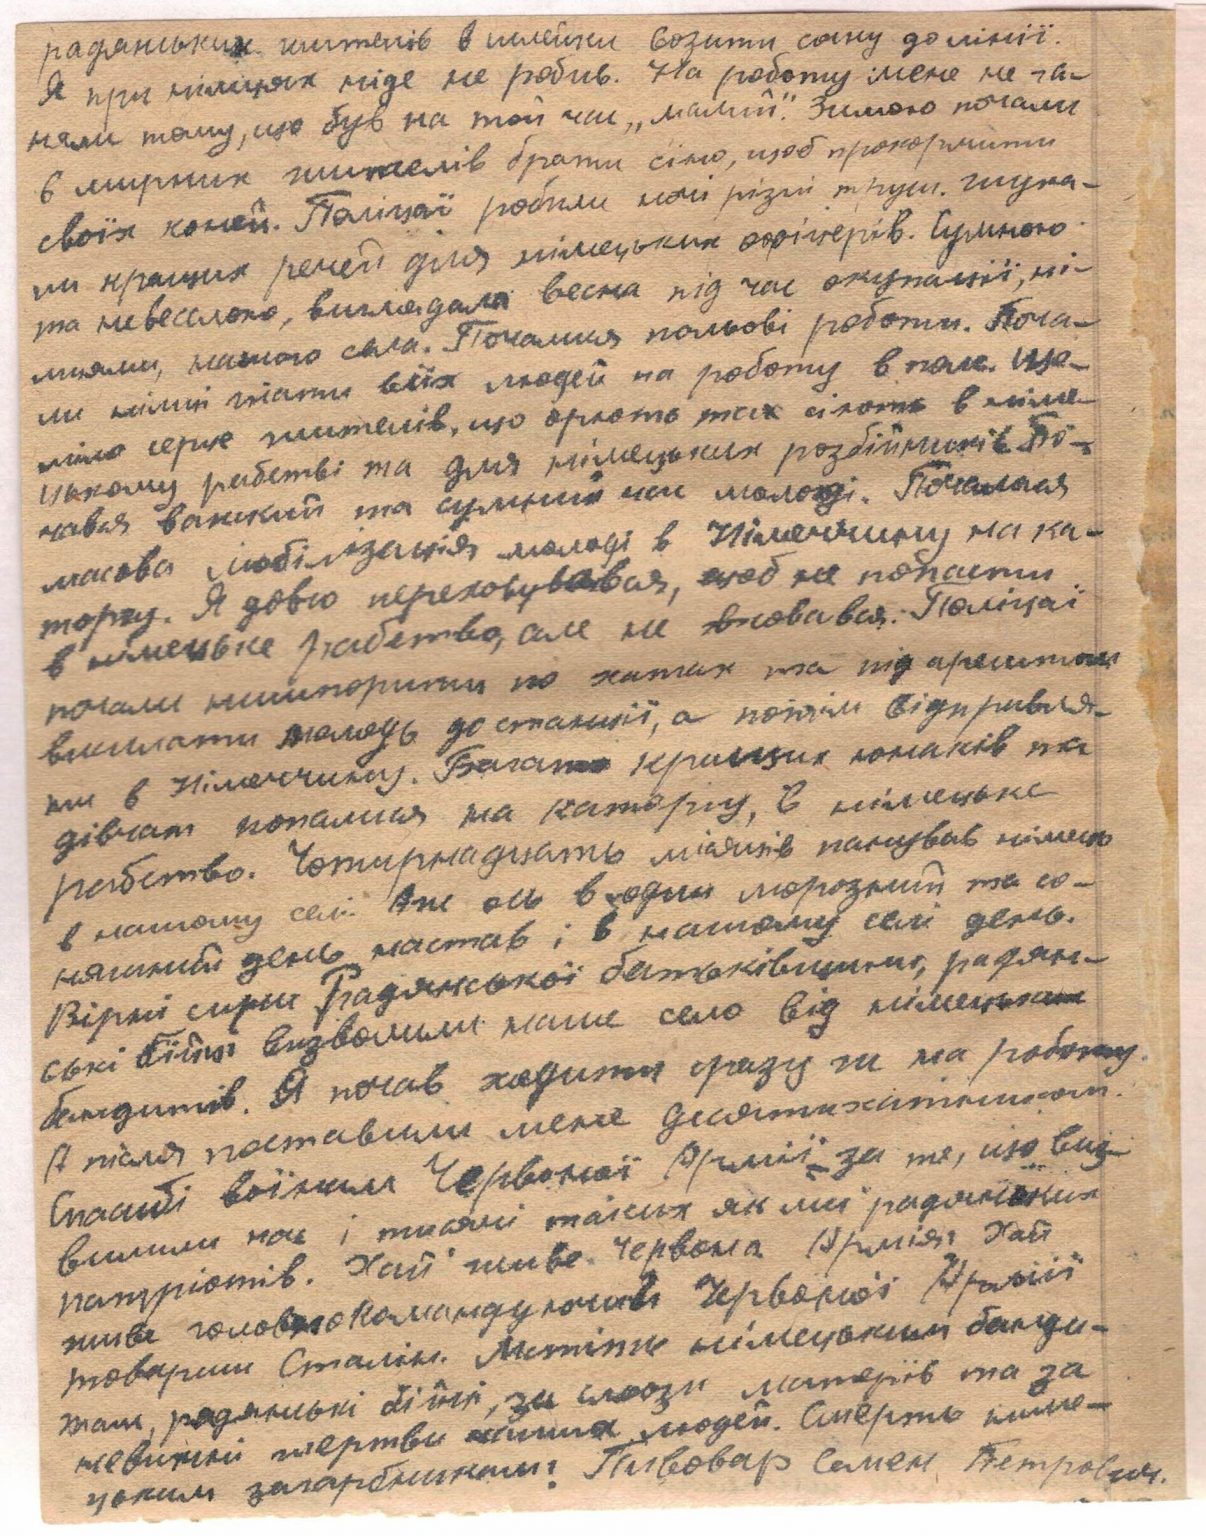 радянських жителів в шлейки возити сани до лінії.
Я при німцях ніде не робив. На роботу мене не га-
няли тому, що був на той час „малий". Зимою почали
в мирних жителів брати сіно, щоб прокормити
своїх коней. Поліцаї робили ночі різні труси. Шука-
ли кращих речей для німецьких офіцерів. Сумною
та невеселою, виглядала весна під час окупації, ні-
мцями, нашого села. Почалися польові роботи. Поча-
ли німці гнати всіх людей на роботу в поле. Ще-
міло серце жителів, що орють та сіють в німе-
цькому рабстві та для німецьких розбійників. По-
чався важкий та сумний час молоді. Почалася
масова мобілізація молоді в Німеччину на ка-
торгу. Я довго переховувався, щоб не попасти
в німецьке рабство, але не вховався. Поліцаї
почали нишпорити по хатах та під арештом
висилати молодь до станції, а потім відправля-
ти в Німеччину. Багато кращих юнаків та
дівчат попалися на каторгу, в німецьке
рабство. Чотирнадцять місяців панував німець
в нашому селі. Аж ось в один морозний та со-
няшний день настав і в нашому селі день.
Вірні сини Радянської батьківщини, радян-
ські бійці визволили наше село від німецьких
бандитів. Я почав ходити зразу ж на роботу.
А після поставили мене десятихатником.
Спасибі воїнам Червоної Армії за те, що виз-
волили нас і тисячі таких як ми радянських
патріотів. Хай живе Червона Армія! Хай
живе головнокомандуючий Червоної Армії
товариш Сталін. Мстіть німецьким банди-
там, радянські бійці, за сльози матерів та за
невинні жертви наших людей. Смерть німе-
цьким загарбникам! Пивовар Семен Петрович.